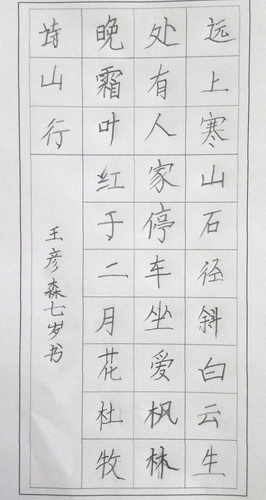 远上寒山石径斜白云生
处有人家停车坐爱枫林
晚霜叶红于二月花杜牧
诗山行
王彦森七岁书